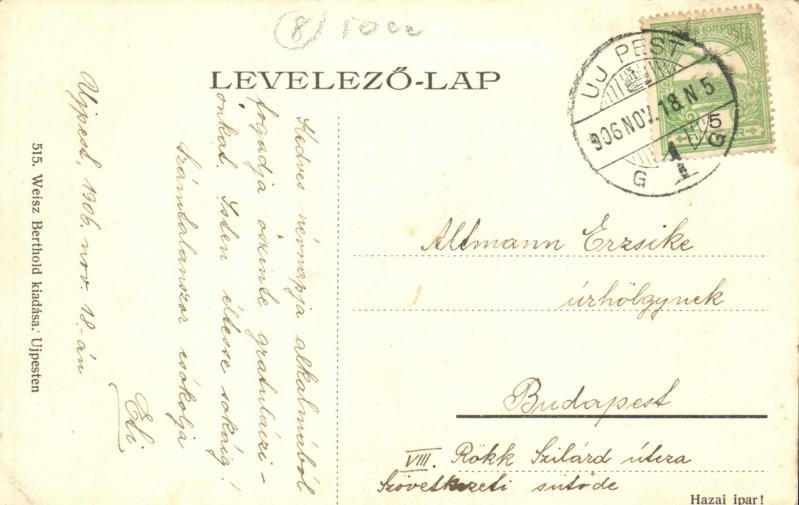 8 10 cc
LEVELEZŐ-LAP
UJ PEST
906 NOV. 18 N 5
G 1 G
5
Kedves névnapja alkalmából
fogadja őszinte gratuláczi-
ónkat. Isten éltesse sokáig!
Számtalanszor csókolja
Edi
Ujpest, 1906. nov. 18.-án
515. Weisz Berthold kiadása. Ujpesten
Altmann Erzsike
úrhölgynek
Budapest
VIII. Rökk Szilárd útcza
Szövetkezeti sütöde
Hazai ipar!